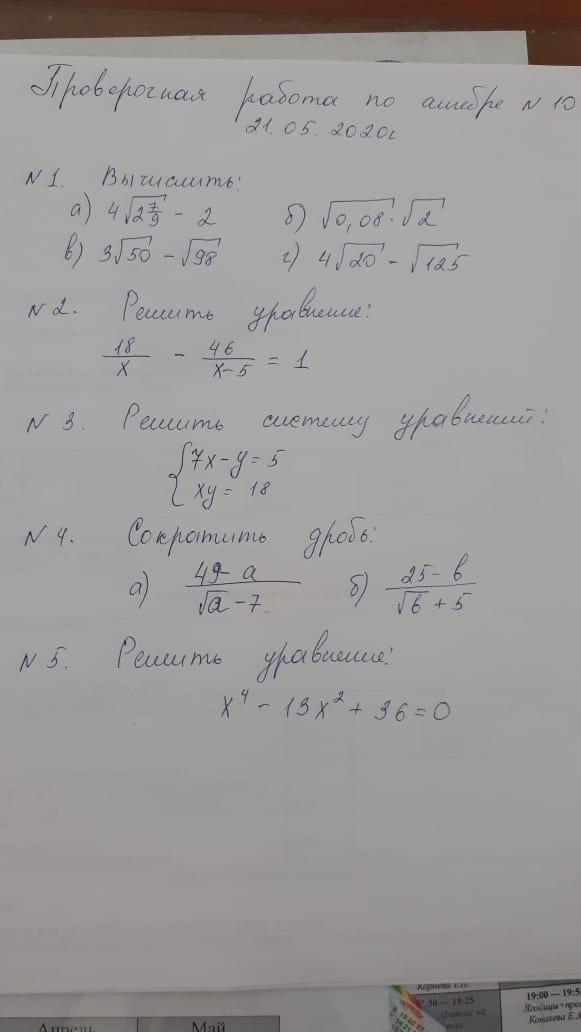 Проверочная работа по алгебре N 10
21.05.2020г
N 1. Вычислить:
а) 4√2 7/9 - 2 б) √0,08 · √2
в) 3√50 - √98 г) 4√20 - √125
N 2. Решить уравнение:
18/x - 46/x-5 = 1
N 3. Решить систему уравнений:
{7x-y=5
xy= 18
N 4. Сократить дробь:
а) 49-a/√a-7 б) 25-b/√b+5
N 5. Решить уравнение:
x⁴ - 13x² + 36=0
19:30 — 19:25
фитнес на
19:00 — 19:5
Ягодицы+пре
Ковалева Е.А
Апрель Май